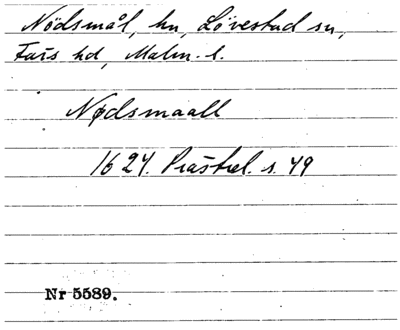 Nödsmål, hn, Lövestad sn,
Färs hd, Malm. l.
Nødsmaall
1624. Prästrel. s. 49
Nr 5589.